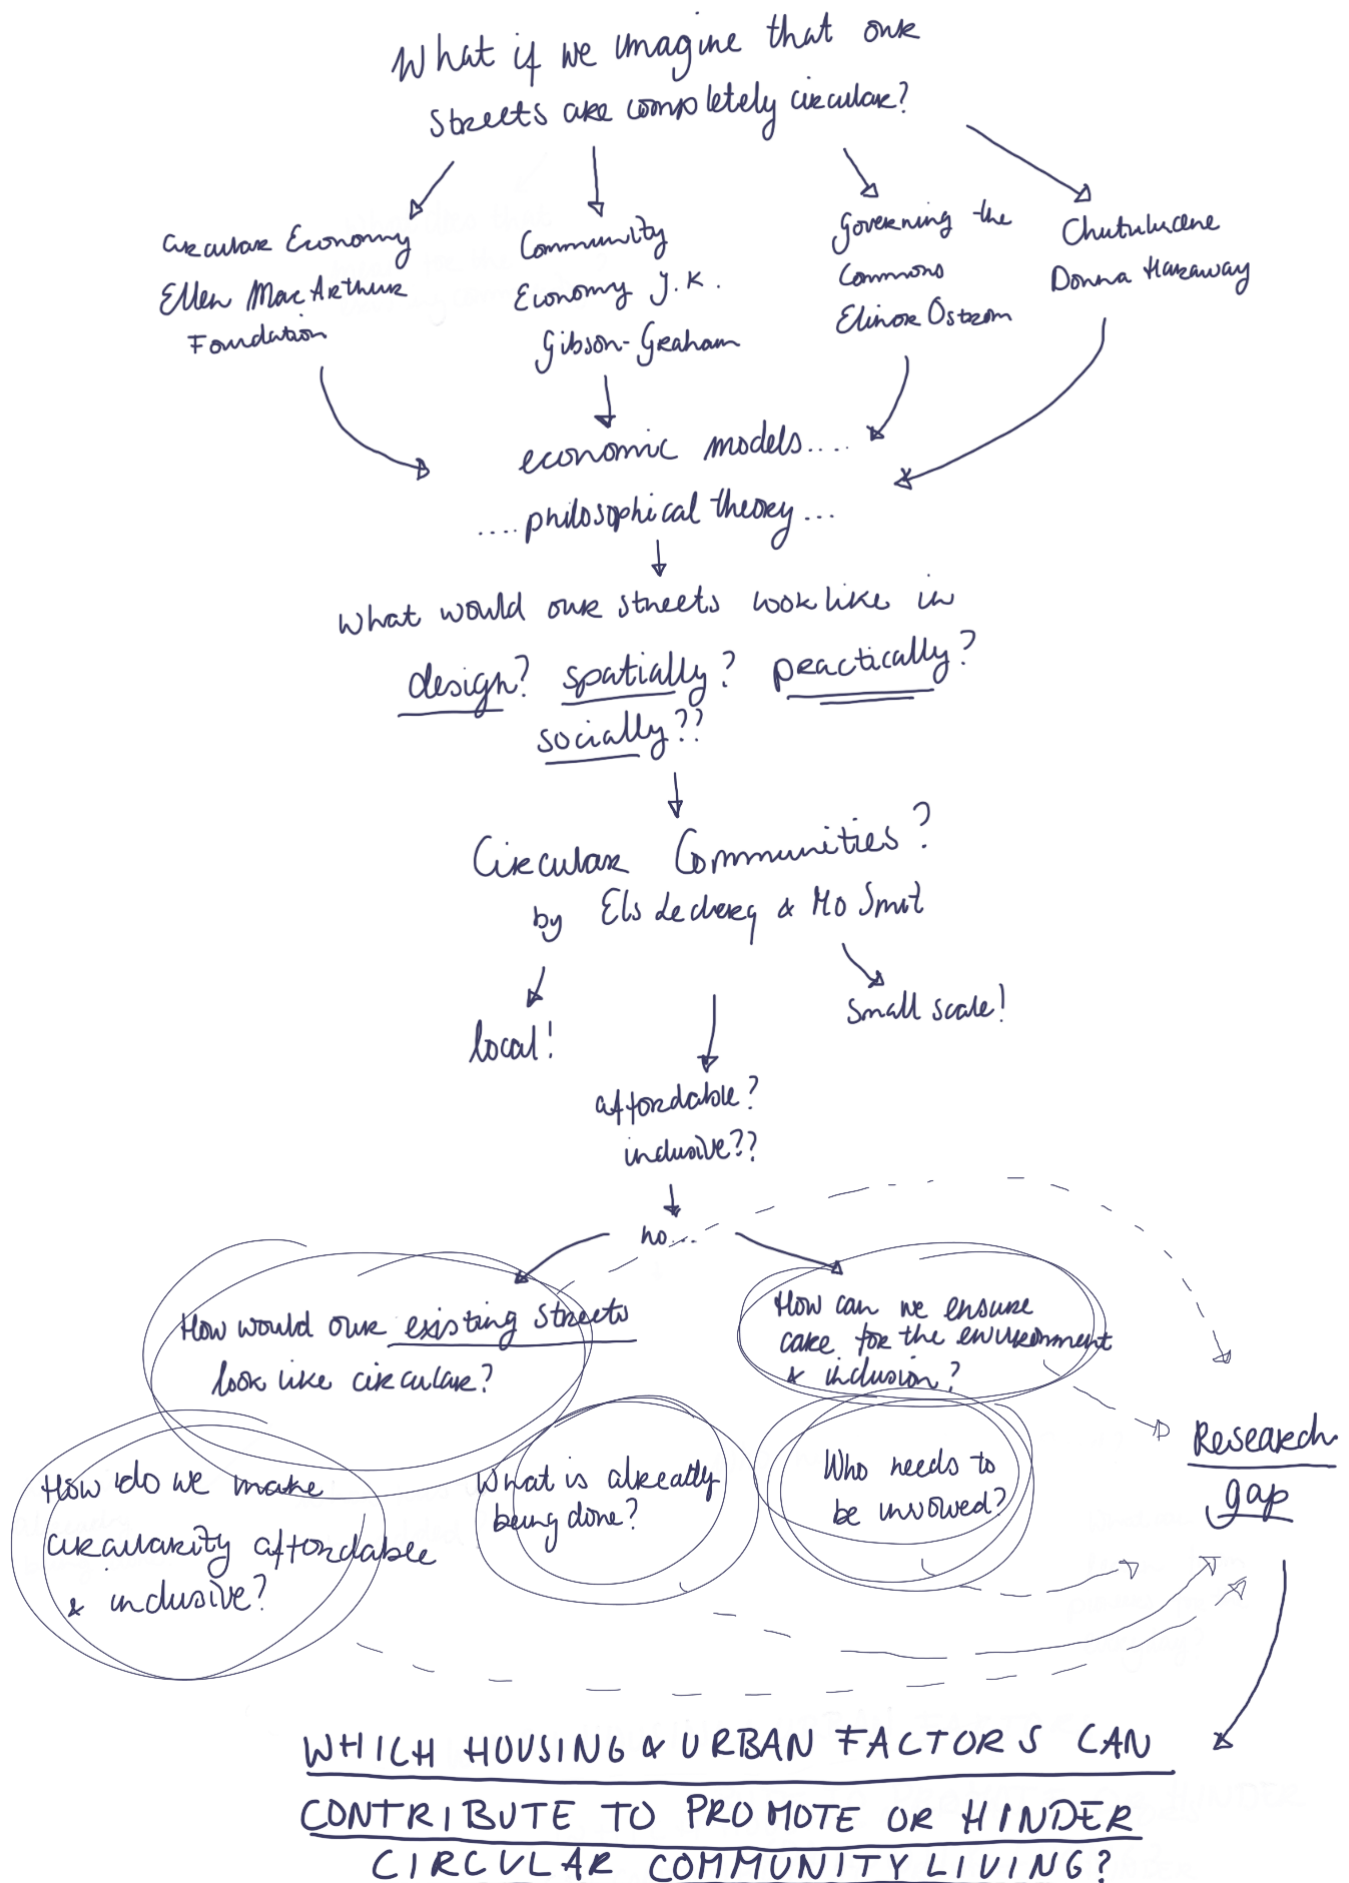 What if we imagine that our
streets are completely circular?
Circular Economy
Ellen MacArthur
Foundation
Community
Economy J.K.
Gibson-Graham
Governing the
Commons
Elinor Ostrom
Chutulucene
Donna Haraway
economic models....
....philosophical theory...
What would our streets look like in
design? spatially? practically?
socially??
Circular Communities?
by Els Leclercq & Mo Smit
local!
small scale!
affordable?
inclusive??
no....
How would our existing streets
look like circular?
How can we ensure
care for the environment
& inclusion?
How do we make
circularity affordable
& inclusive?
What is already
being done?
Who needs to
be involved?
Research
gap
WHICH HOUSING & URBAN FACTORS CAN
CONTRIBUTE TO PROMOTE OR HINDER
CIRCULAR COMMUNITY LIVING?